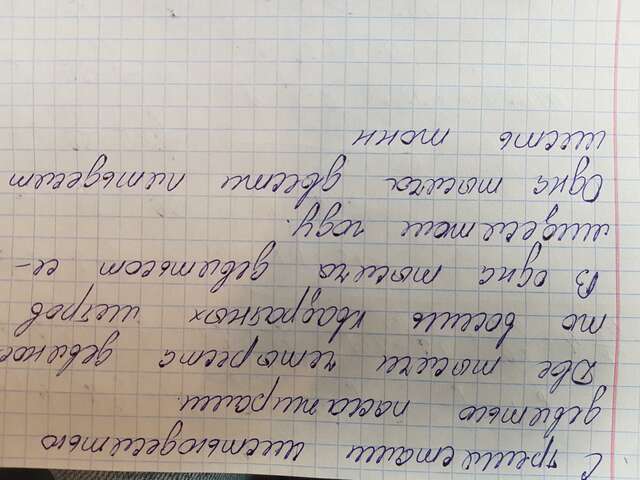 С тремястами шестьюдесятью
девятью пассажирами.
Две тысячи четыреста девянос
то восемь квадратных метров
В одна тысяча девятьсот се-
мидесятом году.
Одна тысяча двести пятьдесят
шесть тонн